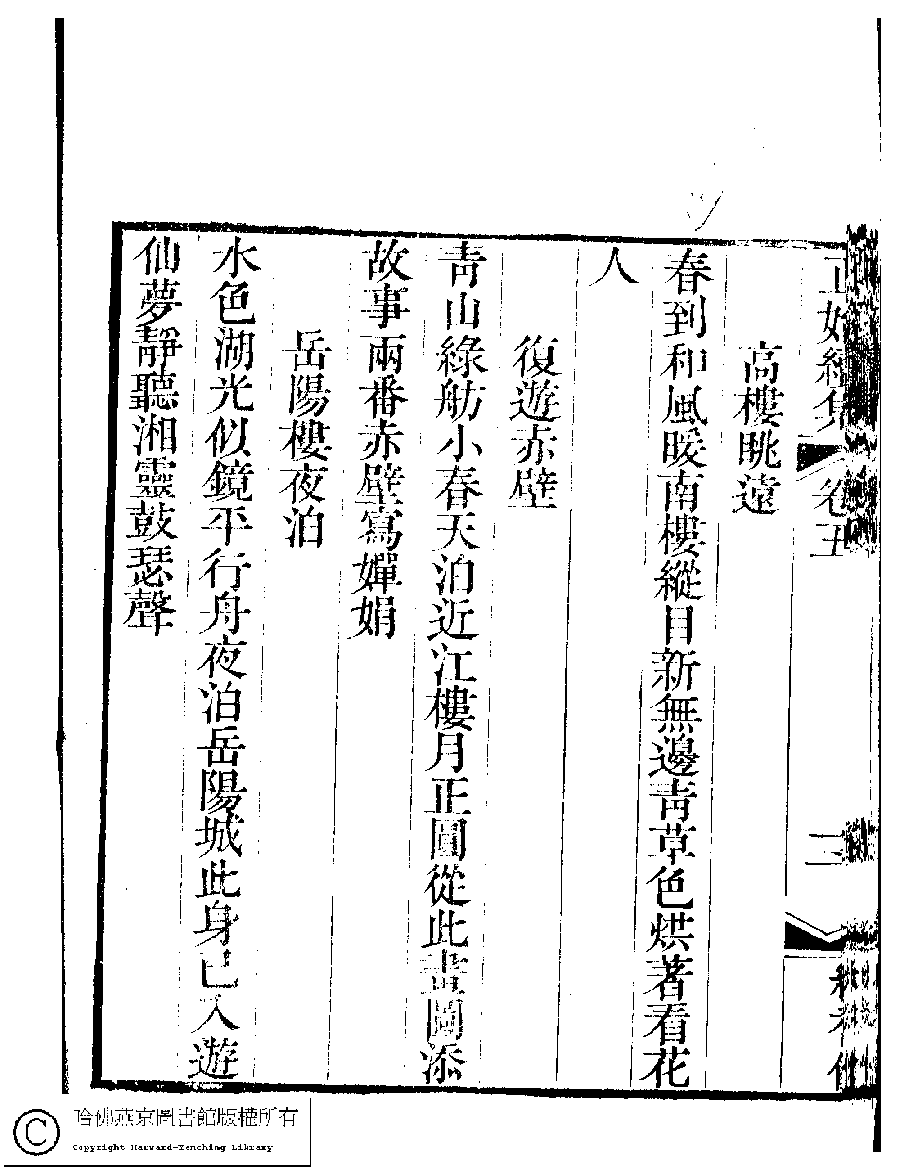 高樓眺遠
春到和風暖南樓縱目新無邊青草色烘著看花
人
復遊赤壁
青山綠舫小春天泊近江樓月正圓從此畫圖添
故事兩番赤壁寫嬋娟
岳陽樓夜泊
水色湖光似鏡平行舟夜泊岳陽城此身已入遊
仙夢靜聽湘靈鼓瑟聲
卷五
三
哈佛燕京圖書館版權所有
Copyright Harvard-Yenching Library